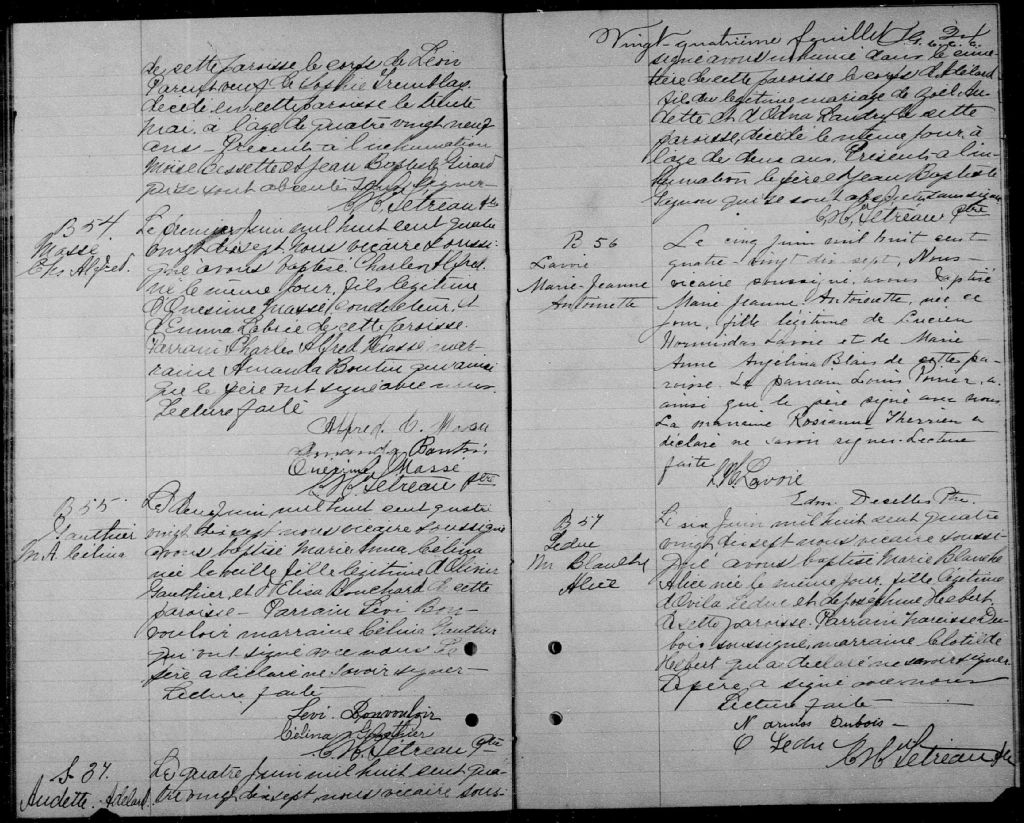 de cette paroisse le corps de Léon
Parent veuf de Sophie Tremblay
décédé en cette paroisse le trente
mai, à l'âge de quatre vingt neuf
ans - Présents à l'inhumation
Moise Bessette et Jean Baptiste Girard
qui se sont absentés sans signer -
C. H. Sétreau Ptre
B 54
Massé
Chs Alfred.
Le premier Juin mil huit cent quatre
vingt dix sept Nous vicaire soussi-
gné avons baptisé Charles Alfred
né le même jour, fils légitime
d'Onésime Massé, conducteur, et
d'Emma Labrie de cette paroisse.
Parrain Charles Alfred Massé mar-
raine Amanda Boutin qui ainsi
que le père ont signé avec nous
Lecture faite
Alfred C. Massé
Amanda Boutin
Onésime Massé
C. H. Sétreau Ptre
B 55
Gauthier
M. A. Célina
Le deux Juin mil huit cent quatre
vingt dix sept nous vicaire soussigné
avons baptisé Marie Anna Célina
née la veille fille légitime d'Olivier
Gauthier et d'Eliza Bouchard de cette
paroisse - Parrain Lévi Bon-
vouloir marraine Célina Gauthier
qui ont signé avec nous Le
père a déclaré ne savoir signer -
Lecture faite
Levi Bonvouloir
Célina Gauthier
C. H. Sétreau Ptre
S 37.
Audette Adélard.
Le quatre Juin mil huit cent qua-
tre vingt dix sept, nous vicaire sous-
Vingt-quatrième feuillet 24
signé avons inhumé dans le cime-
tière de cette paroisse le corps d'Adélard
fils du légitime mariage de Joël Au-
dette et d'Edna Landry de cette
paroisse, décédé le même jour, à
l'âge de deux ans. Présents à l'in-
humation le père et Jean Baptiste
Gignon qui se sont absentés sans signer
C. H. Sétreau Ptre
B 56
Lavoie
Marie-Jeanne
Antoinette
Le cinq Juin mil huit cent
quatre vingt dix sept, Nous
vicaire soussigné, avons baptisé
Marie Jeanne Antoinette, née ce
jour, fille légitime de Lucien
Hormisdas Lavoie et de Marie
Anne Angélina Blais de cette pa-
roisse. Le parrain Louis Poirier, a,
ainsi que le père signé avec nous
La marraine Rosianne Therrien a
déclaré ne savoir signer. Lecture
faite
L. H. Lavoie
Edm. Deselles Ptre.
B 57
Leduc
M Blanche
Alice
Le six Juin mil huit cent quatre
vingt dix sept nous vicaire soussi-
gné avons baptisé Marie Blanche
Alice née le même jour, fille légitime
d'Ovila Leduc et de Joséphine Hébert
de cette paroisse. Parrain Narcisse Du-
bois soussigné, marraine Clotilde
Hébert qui a déclaré ne savoir signer
Le père a signé avec nous
Lecture faite
Narciss Dubois -
O Leduc
C. H. Sétreau Ptre